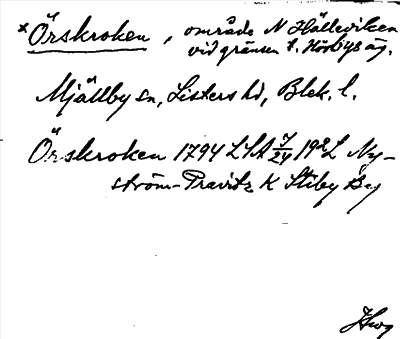 * Örskroken, område N Hälleviken
vid gränsen t. Hörbys äg.
Mjällby sn, Listers hd, Blek. l.
Örskroken 1794 LSA 7/24 1922 Ny-
ström-Pravitz K Stiby By